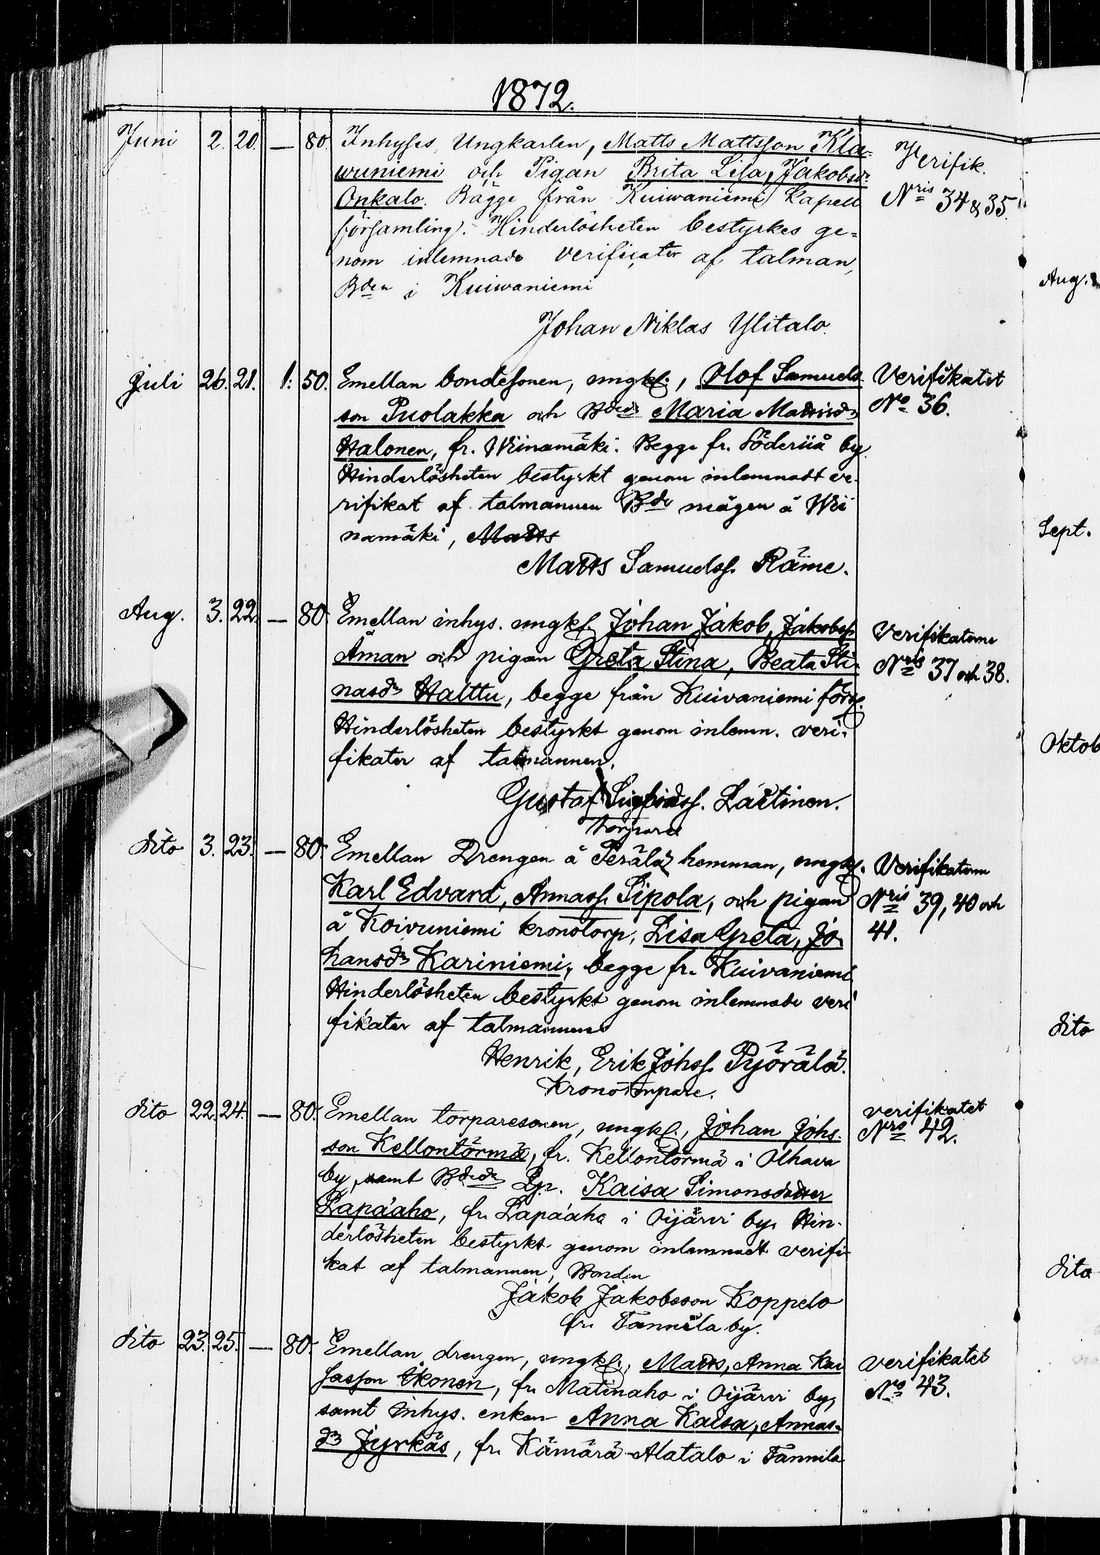 1872.
Juni 2. 20. — 80. Inhyses Ungkarlen, Matts Mattsson Kla- Verifik.
wuniemi och Pigan Brita Lisa, Jakobsdr Nris 34 & 35.
Onkalo. Bägge från Kuiwaniemi Kapell
församling. Hinderlösheten bestyrkes ge-
nom inlemnade verificater af talman,
Bden i Kuiwaniemi
Johan Niklas Ylitalo.
Juli 26. 21. 1: 50. Emellan bondesonen, ungkl., Olof Samuels Verifikatet
son Puolakka och Bdedr Maria Mattsdr No 36.
Halonen, fr. Wiinamäki. Begge fr. Söderiiå by
Hinderlösheten bestyrkt genom inlemnadt ve-
rifikat af talmannen Bde mågen å Wii
namäki, Matts
Matts Samuelss. Räme.
Aug. 3. 22. — 80. Emellan inhys. ungkl. Johan Jakob, Jakobss. Verifikaterne
Åman och pigan Greta Stina, Beata Sti- Nris 37 och 38.
nasdr Halttu, begge från Kuivaniemi förs.
Hinderlösheten bestyrkt genom inlemn. veri-
fikater af talmannen,
Gustaf Sigfridss. Laitinen.
torpare
dito 3. 23. — 80. Emellan Drengen å Perälä hemman, ungkl. Verifikaterne
Karl Edvard, Annass. Sipola, och pigan Nris 39, 40 och
å Koivuniemi kronotorp, Lisa Greta, Jo 41.
hansdr Kariniemi, begge fr. Kuivaniemi
Hinderlösheten bestyrkt genom inlemnade veri
fikater af talmannen
Henrik, Erik Johss. Pyörälä.
Kronotorpare.
dito 22. 24. — 80. Emellan torparesonen, ungkl., Johan Johs- verifikatet
son Kellontörmä, fr. Kellontörmä i Olhava Nro 42.
by, samt Bdedr Lp. Kaisa Simonsdotter
Lapaaho, fr. Lapaaho i Oijärvi by. Hin-
derlösheten bestyrkt genom inlemnadt verifi-
kat af talmannen, Bonden
Jakob Jakobsson Koppelo
fr. Tannila by.
dito 23. 25. — 80. Emellan drengen, ungkl., Matts, Anna Kai verifikatet
sasson Ikonen, fr. Matinaho i Oijärvi by, No 43.
samt inhys. enkan Anna Kaisa, Annas-
dr Jyrkäs, fr. Kämärä-Alatalo i Tannila
Aug.
Sept.
Oktob
dito
dito